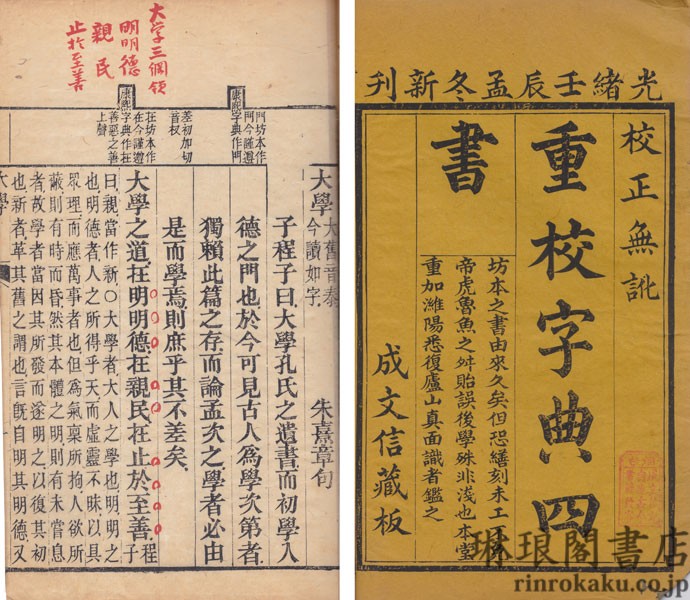 光緒壬辰孟冬新刊
校正無訛
重校字典四
書
坊本之書由來久矣但恐繕刻未工
帝虎魯魚之舛貽誤後學殊非淺也本堂
重加濰陽悉復廬山真面識者鑑之
成文信藏板
大学三個領
明明德
親民
止於至善
康熙
字典作門
門坊本作
門今謹遵
差初加切
音杈
康熙
字典作在
在坊本作
在今謹遵
善惡之善
上聲
大學
大舊音泰
今讀如字
朱熹章句
子程子曰大學孔氏之遺書而初學入
德之門也於今可見古人為學次第者
獨賴此篇之存而論孟次之學者必由
是而學焉則庶乎其不差矣
大學之道在明明德在親民在止於至善
程子
曰親當作新○大學者大人之學也明明之
也明德者人之所得乎天而虛靈不昧以具
眾理而應萬事者也但為氣稟所拘人欲所
蔽則有時而昏然其本體之明則有未嘗息
者故學者當因其所發而遂明之以復其初
也新者革其舊之謂也言既自明其明德又
大學
琳琅閣書店
rinrokaku.co.jp